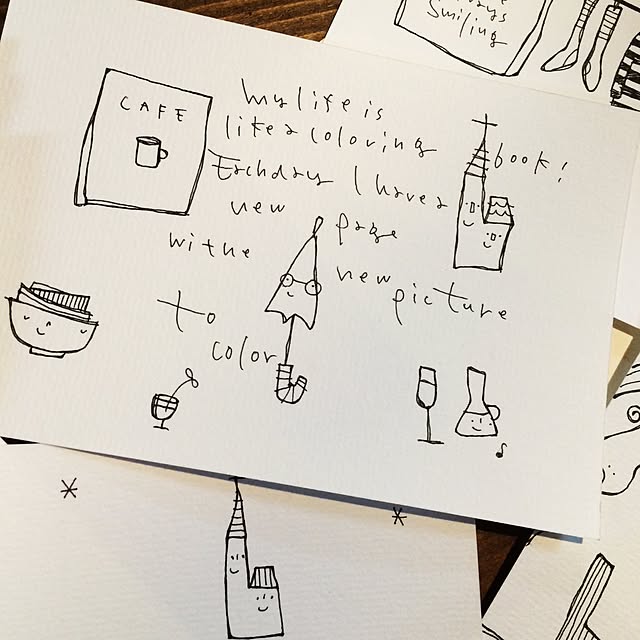 ways
Smiling
CAFE
My life is
like a coloring book!
Eachday I have a
new page
withe new picture
to
color